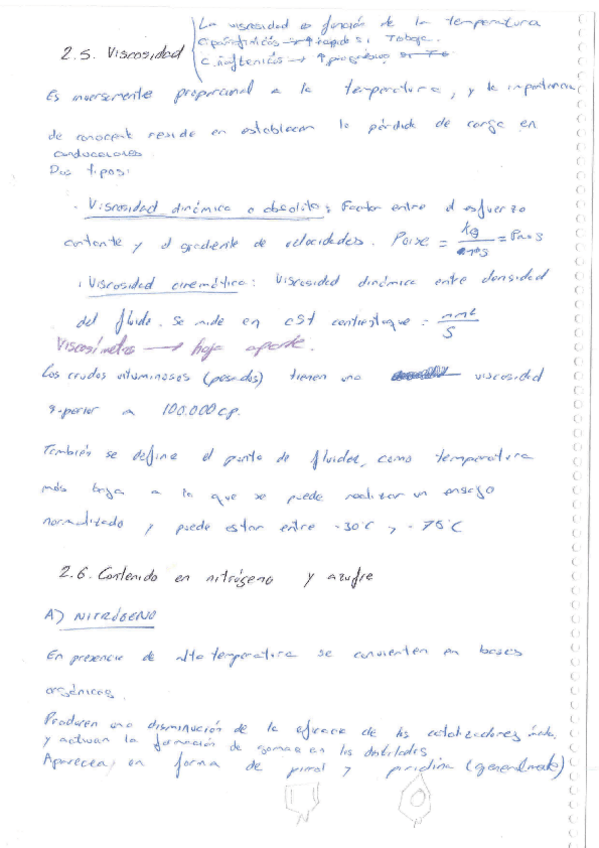 La viscosidad es función de la temperatura
C. parafínicos → ↑ rápido si T baja.
2.5. Viscosidad
C. nafténicos → ↑ progresivo
Es inversemente proporcional a la temperatura, y la importancia
de conocerla reside en establecer la pérdida de carga en
conducciones
Dos tipos:
· Viscosidad dinámica o absoluta: Factor entre el esfuerzo
cortante y el gradiente de velocidades. Poise = = Pa · s
· Viscosidad cinemática: Viscosidad dinámica entre densidad
del fluido. Se mide en cSt centistoque = mm2/s
Viscosímetro → hoja aparte.
Los crudos bituminosos (pesados) tienen una viscosidad
superior a 100.000 cp.
También se define el punto de fluidez, como temperatura
más baja a la que se puede realizar un ensayo
normalizado y puede estar entre -30°C y -75°C
2.6. Contenido en nitrógeno y azufre
A) NITRÓGENO
En presencia de alta temperatura se convierten en bases
orgánicas.
Producen una disminución de la eficacia de los catalizadores
y activan la formación de gomas en los destilados
Aparecen en forma de pirrol y piridina (generalmente)